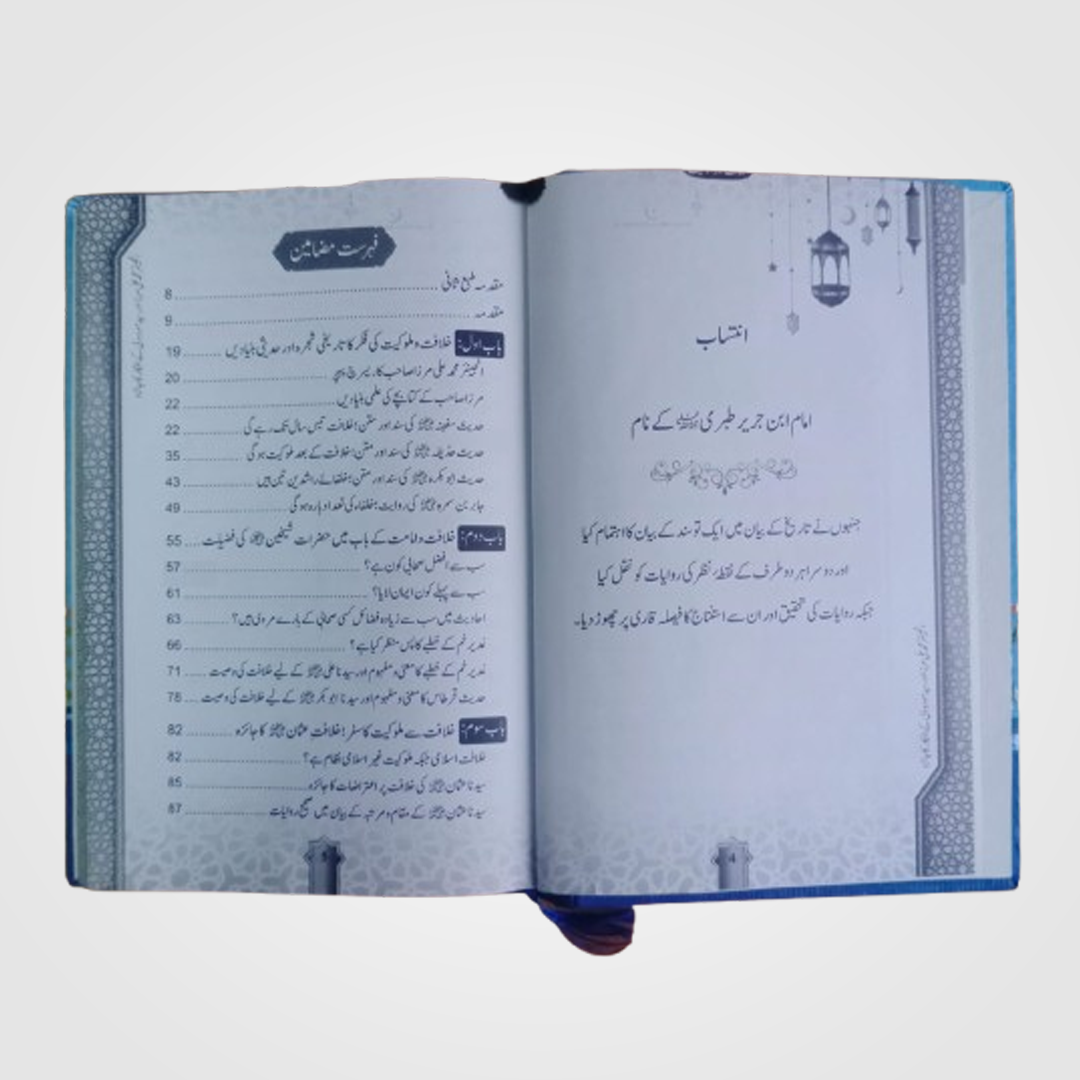 انتساب
امام ابن جریر طبری رحمہ اللہ کے نام
جنہوں نے تاریخ کے بیان میں ایک تو سند کے بیان کا اہتمام کیا
اور دوسرا ہر دو طرف کے نقطۂ نظر کی روایات کو نقل کیا
جبکہ روایات کی تحقیق اور ان سے استنتاج کا فیصلہ قاری پر چھوڑ دیا۔
4
فہرست مضامین
مقدمہ طبع ثانی 8
مقدمہ 9
باب اول: خلافت و ملوکیت کی فکر کا تاریخی شجرہ اور حدیثی بنیادیں 19
انجینئر محمد علی مرزا صاحب کا ریسرچ پیپر 20
مرزا صاحب کے کتابچے کی علمی بنیادیں 22
حدیث سفینہ رضی اللہ عنہ کی سند اور متن: خلافت تیس سال تک رہے گی 22
حدیث حذیفہ رضی اللہ عنہ کی سند اور متن: خلافت کے بعد ملوکیت ہو گی 35
حدیث ابو بکرہ رضی اللہ عنہ کی سند اور متن: خلفائے راشدین تین ہیں 43
جابر بن سمرہ رضی اللہ عنہ کی روایت: خلفاء کی تعداد بارہ ہو گی 49
باب دوم: خلافت و امامت کے باب میں حضرات شیخین رضی اللہ عنہما کی فضیلت 55
سب سے افضل صحابی کون ہے؟ 57
سب سے پہلے کون ایمان لایا؟ 61
احادیث میں سب سے زیادہ فضائل کس صحابی کے بارے مروی ہیں؟ 63
غدیر خم کے خطبے کا پس منظر کیا ہے؟ 66
غدیر خم کے خطبے کا معنی و مفہوم اور سیدنا علی رضی اللہ عنہ کے لیے خلافت کی وصیت 71
حدیث قرطاس کا معنی و مفہوم اور سیدنا ابو بکر رضی اللہ عنہ کے لیے خلافت کی وصیت 78
باب سوم: خلافت سے ملوکیت کا سفر: خلافت عثمان رضی اللہ عنہ کا جائزہ 82
خلافت اسلامی جبکہ ملوکیت غیر اسلامی نظام ہے؟ 82
سیدنا عثمان رضی اللہ عنہ کی خلافت پر اعتراضات کا جائزہ 85
سیدنا عثمان رضی اللہ عنہ کے مقام و مرتبہ کے بیان میں صحیح روایات 87